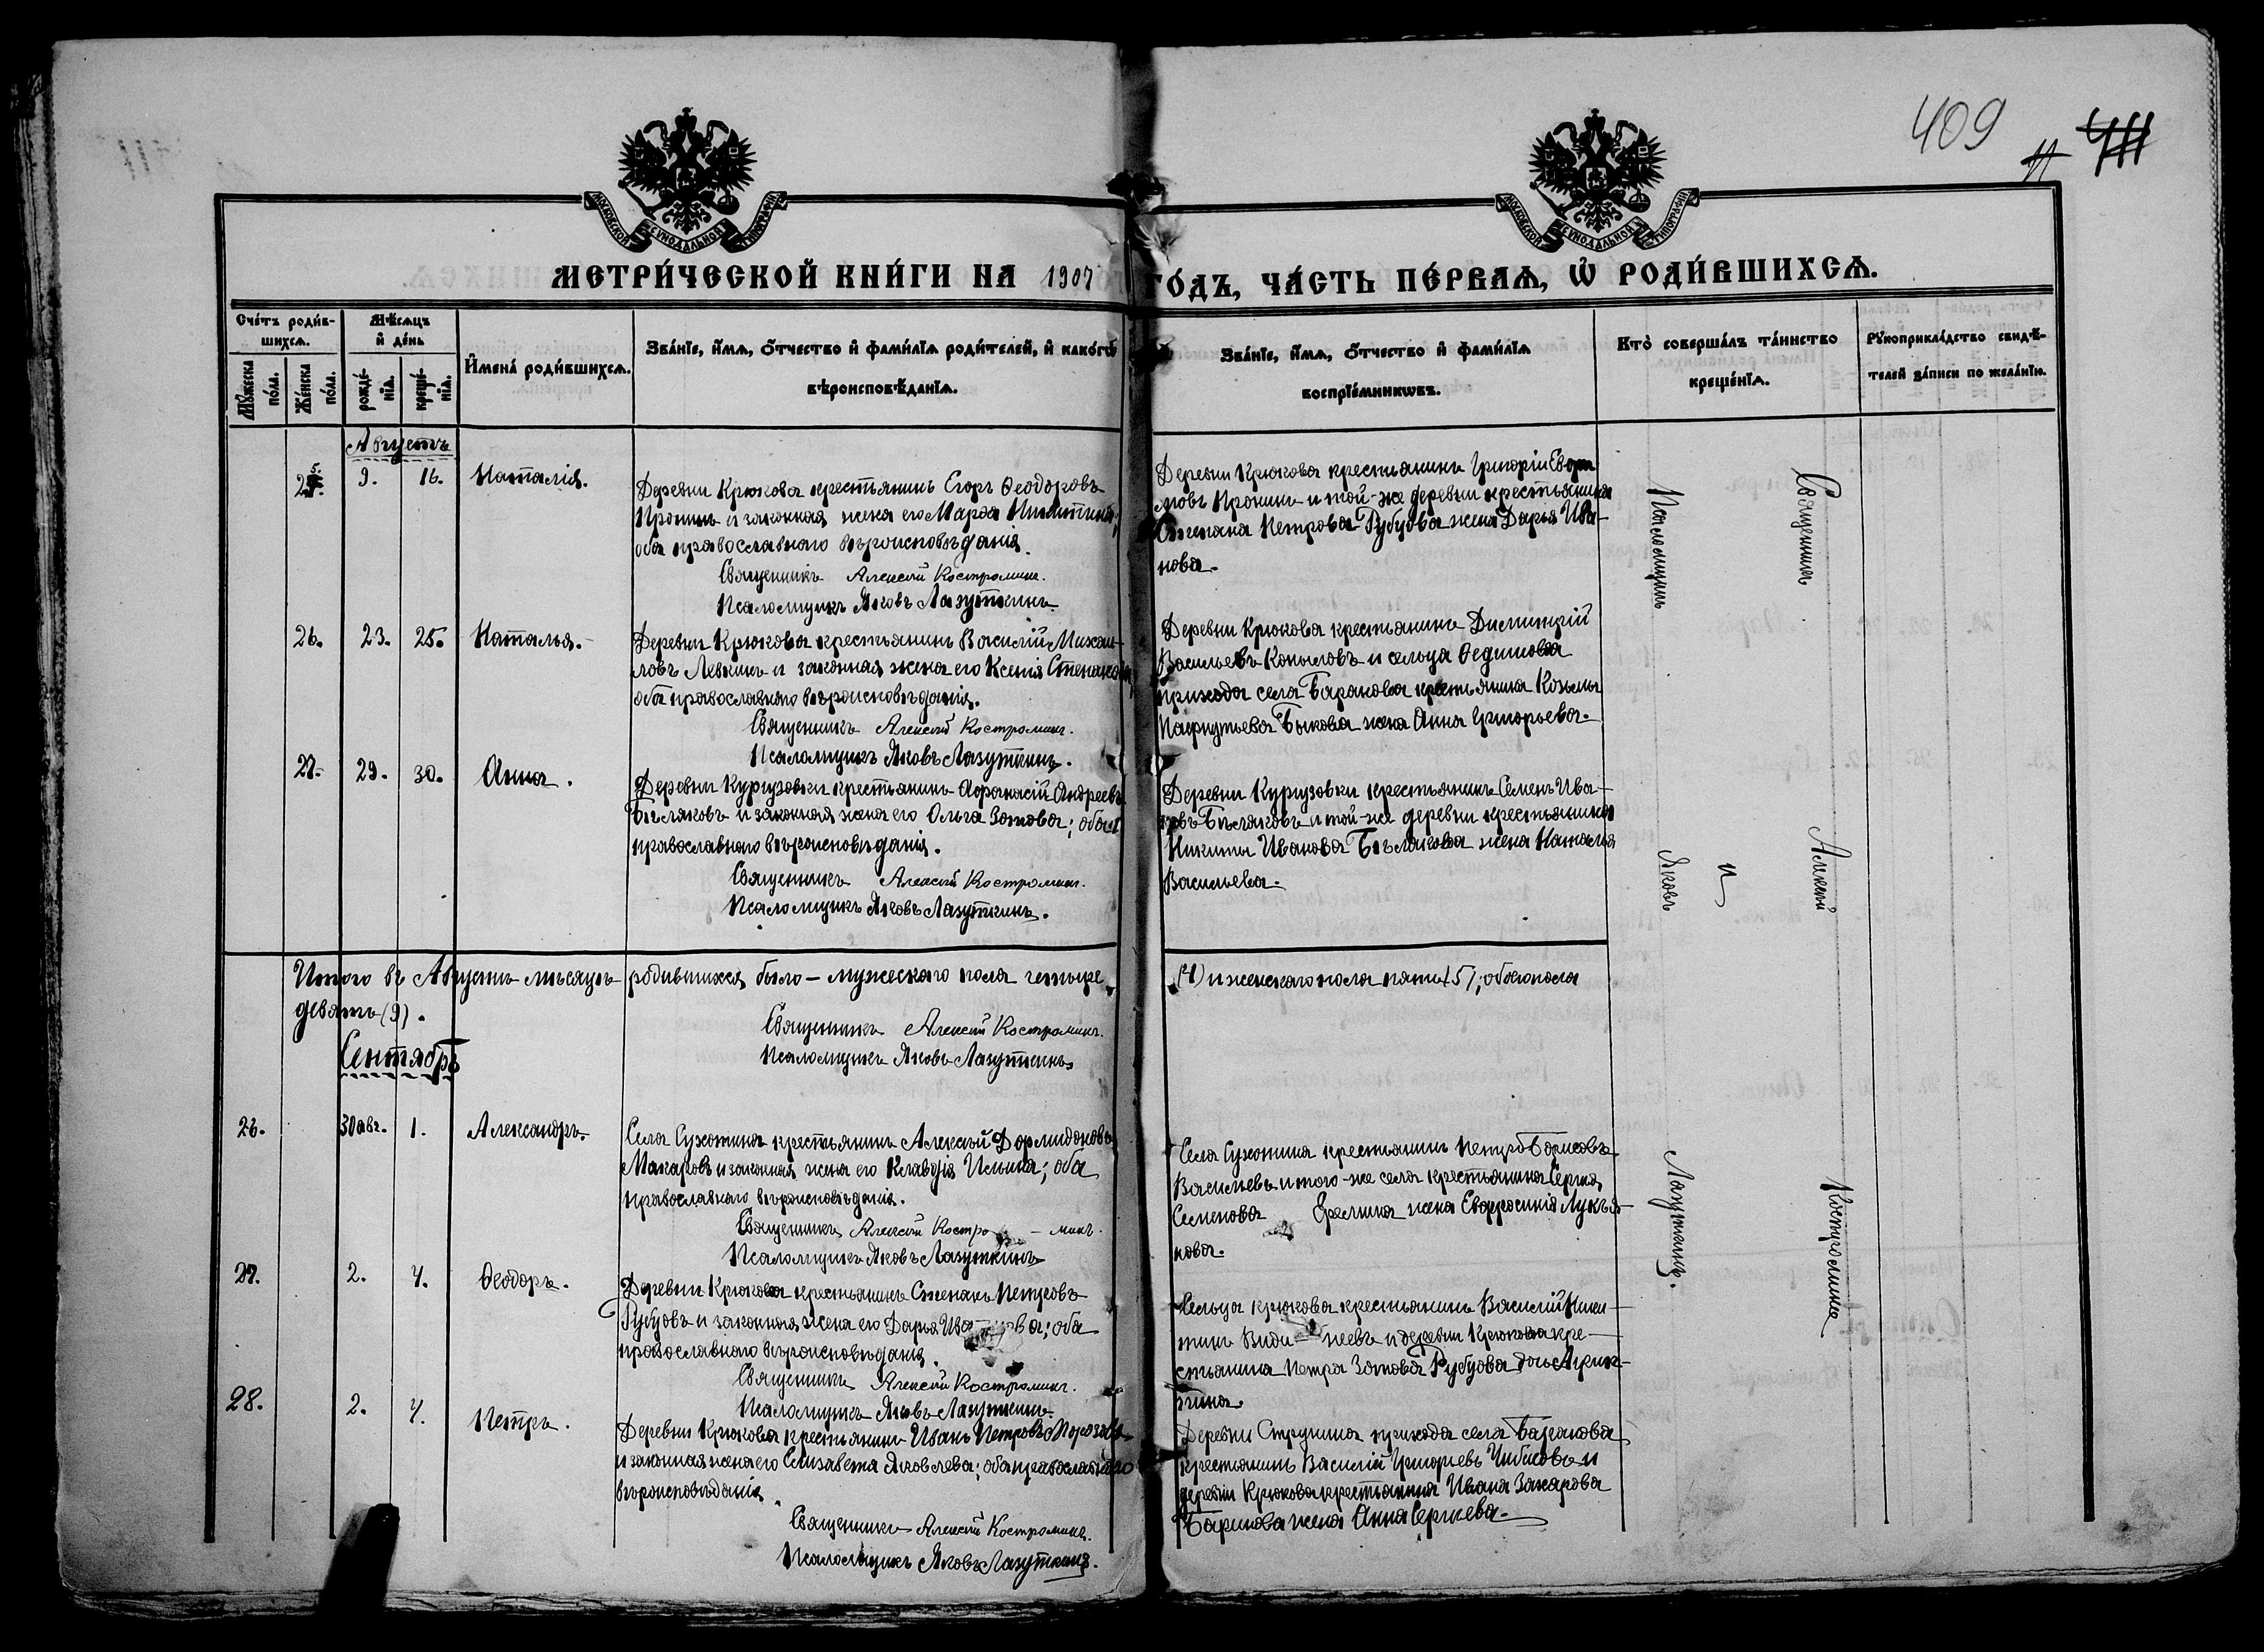 409
МОСКОВСКОЙ СѴНОДАЛЬНОЙ ТИПОГРАФІИ
МОСКОВСКОЙ СѴНОДАЛЬНОЙ ТИПОГРАФІИ
МЕТРИ́ЧЕСКОЙ КНИ́ГИ НА 1907 ГО́ДЪ, ЧА́СТЬ ПЕ́РВАѦ, Ѽ РОДИ́ВШИХСѦ.
Сче́тъ роди́в-
шихсѧ.
Мꙋ́жеска по́ла.
Же́нска по́ла.
Мѣ́сѧцъ
и҆ де́нь
рожде́-
нїѧ.
креще́-
нїѧ.
И҆мена̀ роди́вшихсѧ.
Зва́нїе, и҆́мѧ, ѻ҆́тчество и҆ фами́лїѧ роди́телей, и҆ како́гѡ
вѣроисповѣ́данїѧ.
Зва́нїе, и҆́мѧ, ѻ҆́тчество и҆ фами́лїѧ
воспрїе́мникѡвъ.
Кто̀ соверша́лъ та́инство
креще́нїѧ.
Рꙋкоприкла́дство свидѣ́-
телей за́писи по жела́нїю.
Августъ
25. 9. 16. Наталія.
Деревни Крюкова крестьянинъ Егоръ Ѳеодоровъ
Пронинъ и законная жена его Марѳа Никитина;
оба православнаго вѣроисповѣданія.
Священникъ Алексій Костроминъ.
Псаломщикъ Яковъ Лазуткинъ.
Деревни Крюкова крестьянинъ Григорій
Пронинъ и той-же деревни крестьянина
Степана Петрова Рубцова жена Дарья Ива-
нова.
26. 23. 25. Наталья.
Деревни Крюкова крестьянинъ Василій Михаи-
ловъ Левкинъ и законная жена его Ксенія Степанова;
оба православнаго вѣроисповѣданія.
Священникъ Алексій Костроминъ.
Псаломщикъ Яковъ Лазуткинъ.
Деревни Крюкова крестьянинъ Димитрій
Васильевъ Копыловъ и сельца Ѳедишова
прихода села Баранова крестьянина Козьмы
Пафнутьева Быкова жена Анна Григорьева.
27. 29. 30. Анна.
Деревни Кургузовки крестьянинъ Аѳанасій Андреевъ
Бѣляковъ и законная жена его Ольга Зотова; оба
православнаго вѣроисповѣданія.
Священникъ Алексій Костроминъ.
Псаломщикъ Яковъ Лазуткинъ.
Деревни Кургузовки крестьянинъ Семенъ Ива-
новъ Бѣляковъ и той-же деревни крестьянина
Никиты Иванова Бѣлякова жена Наталья
Васильева.
Итого въ Августѣ мѣсяцѣ родившихся было – мужескаго пола четыре (4) и женскаго пола пять (5); обоего пола
девять (9).
Священникъ Алексій Костроминъ.
Псаломщикъ Яковъ Лазуткинъ.
Сентябрь
26. 30 авг. 1. Александръ.
Села Сухотина крестьянинъ Алексѣй Дормидоновъ
Макаровъ и законная жена его Клавдія Ильина; оба
православнаго вѣроисповѣданія.
Священникъ Алексій Костро – минъ.
Псаломщикъ Яковъ Лазуткинъ.
Села Сухотина крестьянинъ Петръ Борисовъ
Васильевъ и того-же села крестьянина Сергія
Семенова жена Евфросинія Лукья-
нова.
27. 2. 4. Ѳеодоръ.
Деревни Крюкова крестьянинъ Степанъ Петровъ
Рубцовъ и законная жена его Дарья Иванова; оба
православнаго вѣроисповѣданія.
Священникъ Алексій Костроминъ.
Псаломщикъ Яковъ Лазуткинъ.
Сельца Крюкова крестьянинъ Василій Ники-
тинъ и деревни Крюкова кре-
стьянина Петра Зотова Рубцова дочь Агрип-
пина.
28. 2. 4. Петръ.
Деревни Крюкова крестьянинъ Иванъ Петровъ Морозовъ
и законная жена его Елизавета Яковлева; оба православнаго
вѣроисповѣданія.
Священникъ Алексій Костроминъ.
Псаломщикъ Яковъ Лазуткинъ.
Деревни Струнина прихода села Баранова
крестьянинъ Василій Григорьевъ и
деревни Крюкова крестьянина Ивана Захарова
Баринова жена Анна Сергіева.
Священникъ Алексій Костроминъ
и
Псаломщикъ Яковъ Лазуткинъ.